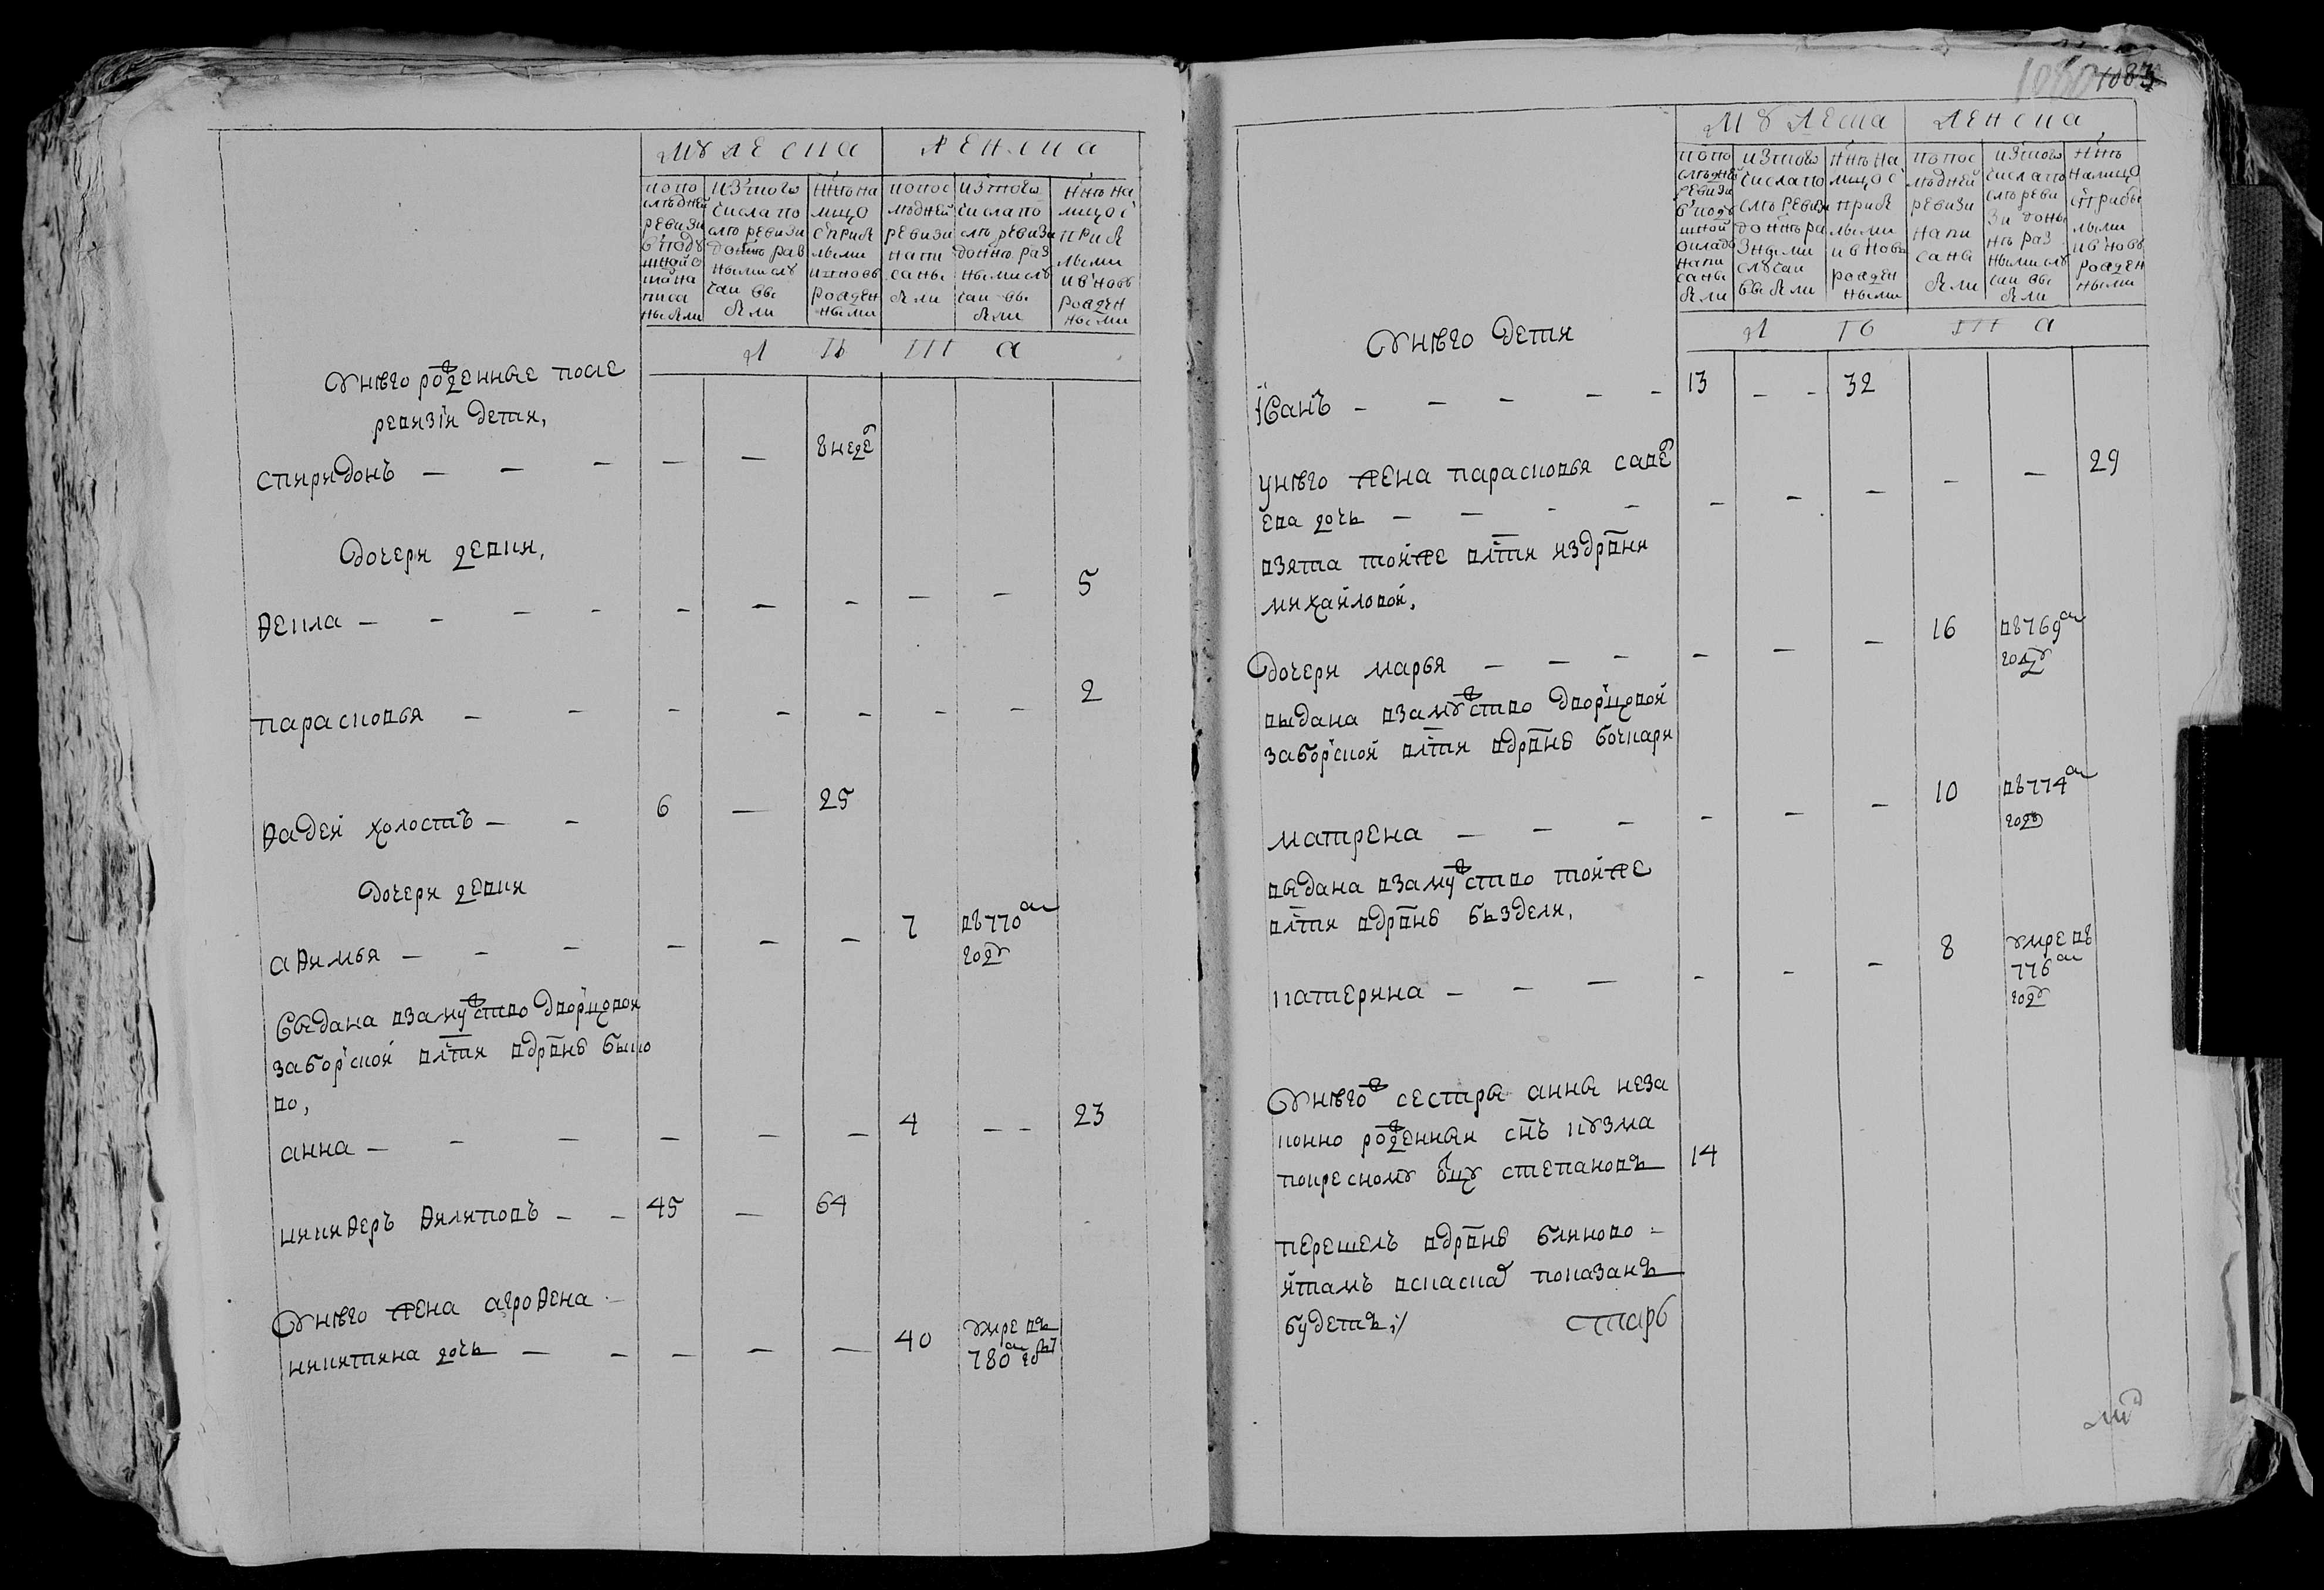 мужеска
женска
попо
следней
ревизи
в подушной с
казкой на
писа
ны были
из того
числа по
сле ревизи
до ныне раз
ными слу
чаи вы
были
ныне на
лицо
с прибы
лыми
и вновь
рожден
ными
по пос
ледней
ревизи
напи
саны
были
из того
числа по
сле ревизи
до ныне раз
ными слу
чаи вы
были
ныне на
лицо с
прибы
лыми
и вновь
рожден
ными
л ѣ т а
у него рожденные после
ревизiи дети,
спиридонъ — — — — — внеде
дочери девки,
фекла — — — — — — — — — 5
парасковья — — — — — — — 2
фадей холостъ — — 6 — 25
дочери девки
афимья — — — — — — 7 въ 770м
году
выдана взамужство дворцовой
заборской влсти вдрвню быко
во,
анна — — — — — — 4 — — 23
никифоръ филиповъ — — 45 — 64
у него жена агрофена
никитина дочь — — — — — 40 умре въ
780м году
1080 1083
мужеска
женска
попо
следней
ревизи
в поду
шной
окладъ
напи
саны
были
из того
числа по
сле ревизи
до ныне ра
зными
случаи
выбыли
ныне на
лицо с
прибы
лыми
и вновь
рожден
ными
по пос
ледней
ревизи
напи
саны
были
из того
числа по
сле реви
зи до ны
не раз
ными слу
чаи вы
были
ныне
налицо
с прибы
лыми
и вновь
рожден
ными
л ѣ т а
у него дети
iванъ — — — — — 13 — — 32
у него жена парасковья саве
ева дочь — — — — — — — — — 29
взята тойже влсти из дрвни
михайловой,
дочери марья — — — — — — 16 въ 769м
году
выдана взамужство дворцовой
заборской влсти вдрвню бочкари
матрена — — — — — — 10 въ 774м
году
выдана взамужство тойже
влсти вдрвню бездели,
катерина — — — — — — 8 умре въ
776м
году
у него ж сестры анны неза
конно рожденный снъ кузма
по кресному оцу степановъ 14
перешелъ вдрвню блиново -
и тамъ в сказке показанъ
будетъ ;/ старо